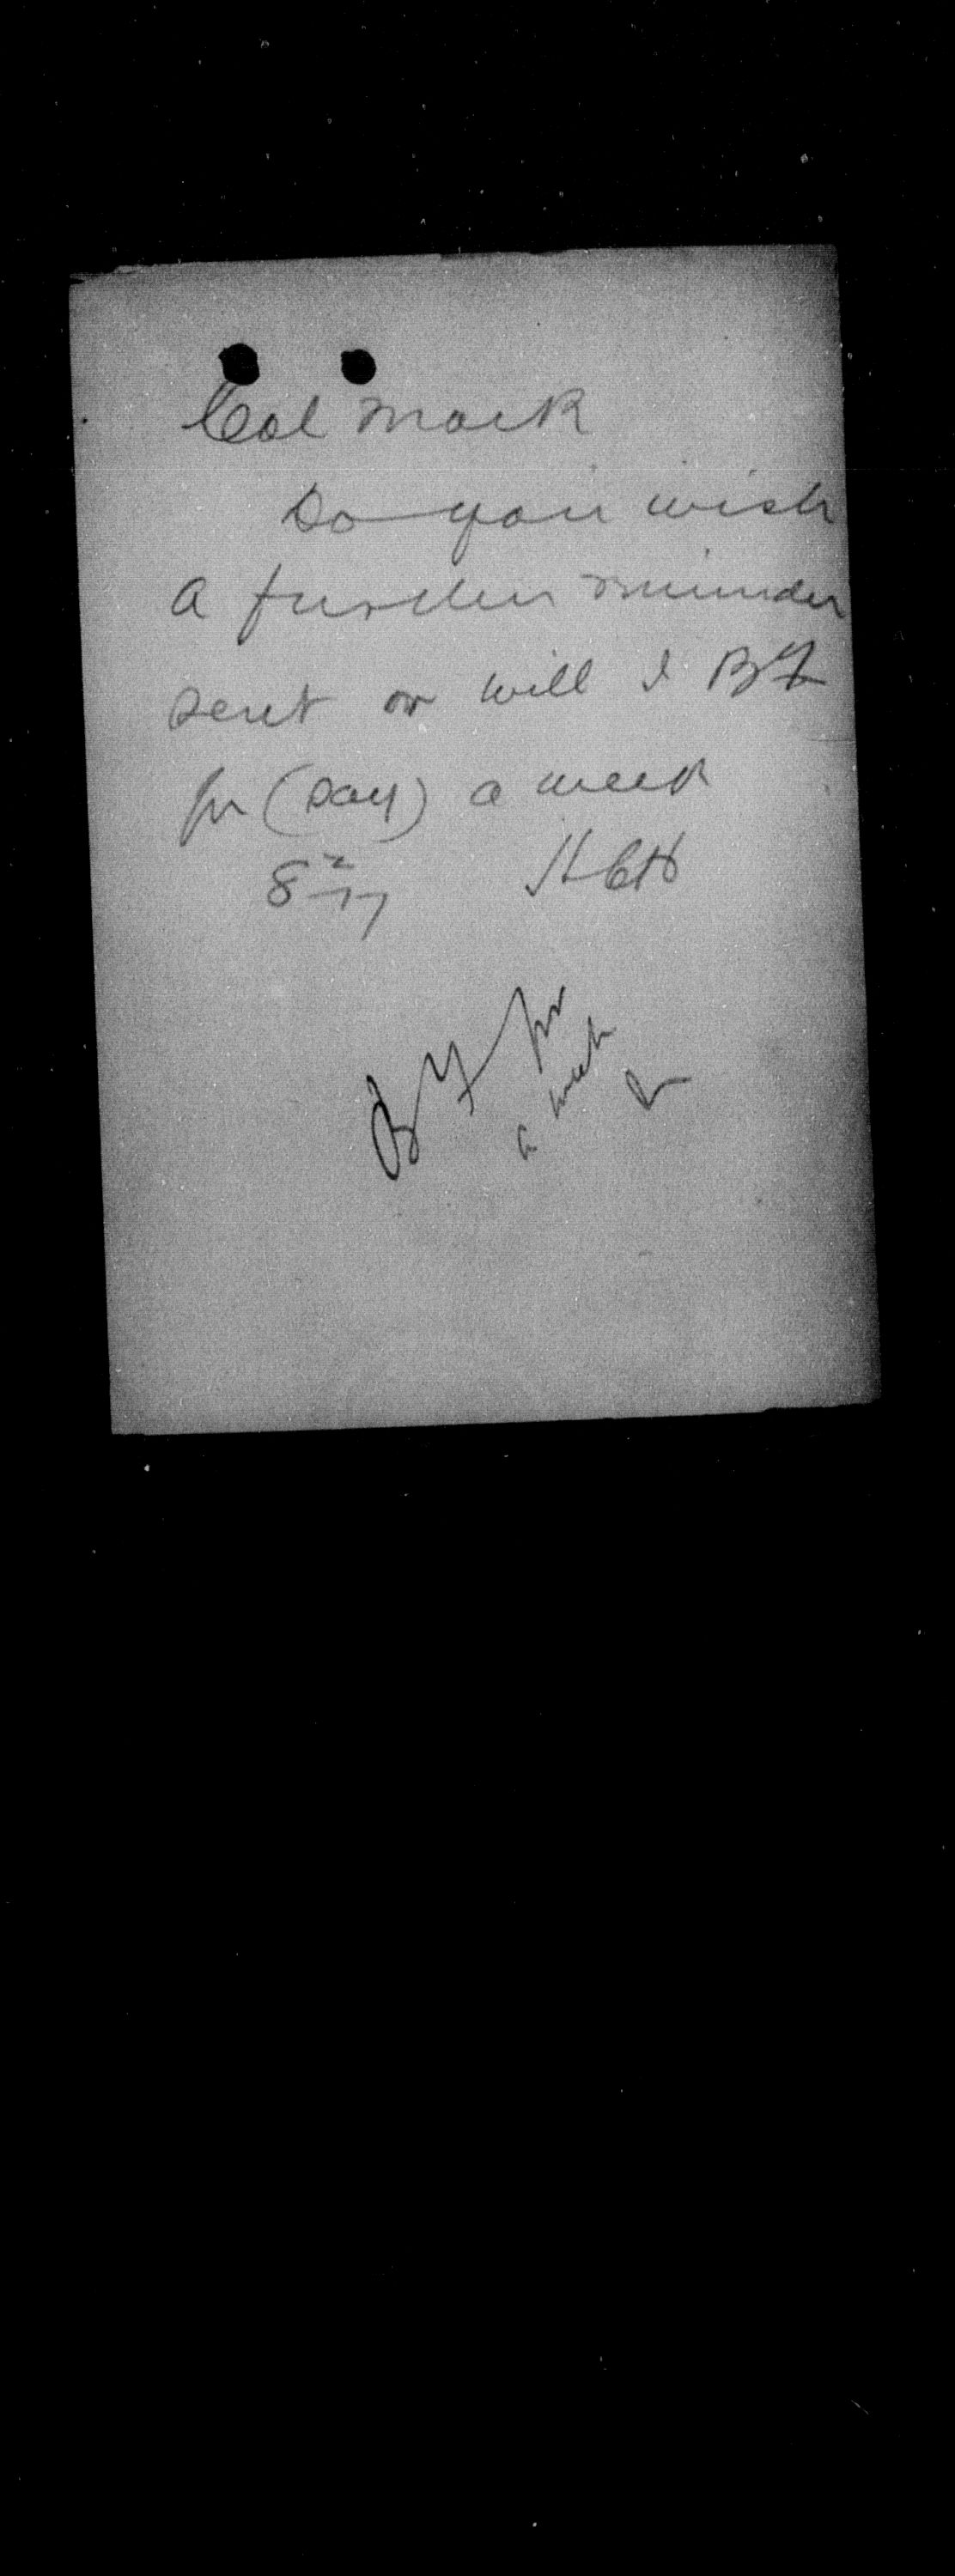 Col Mack
Do you wish
a further reminder
sent or will I BF
for (say) a week
8-2-17 HCH
BF for
a week